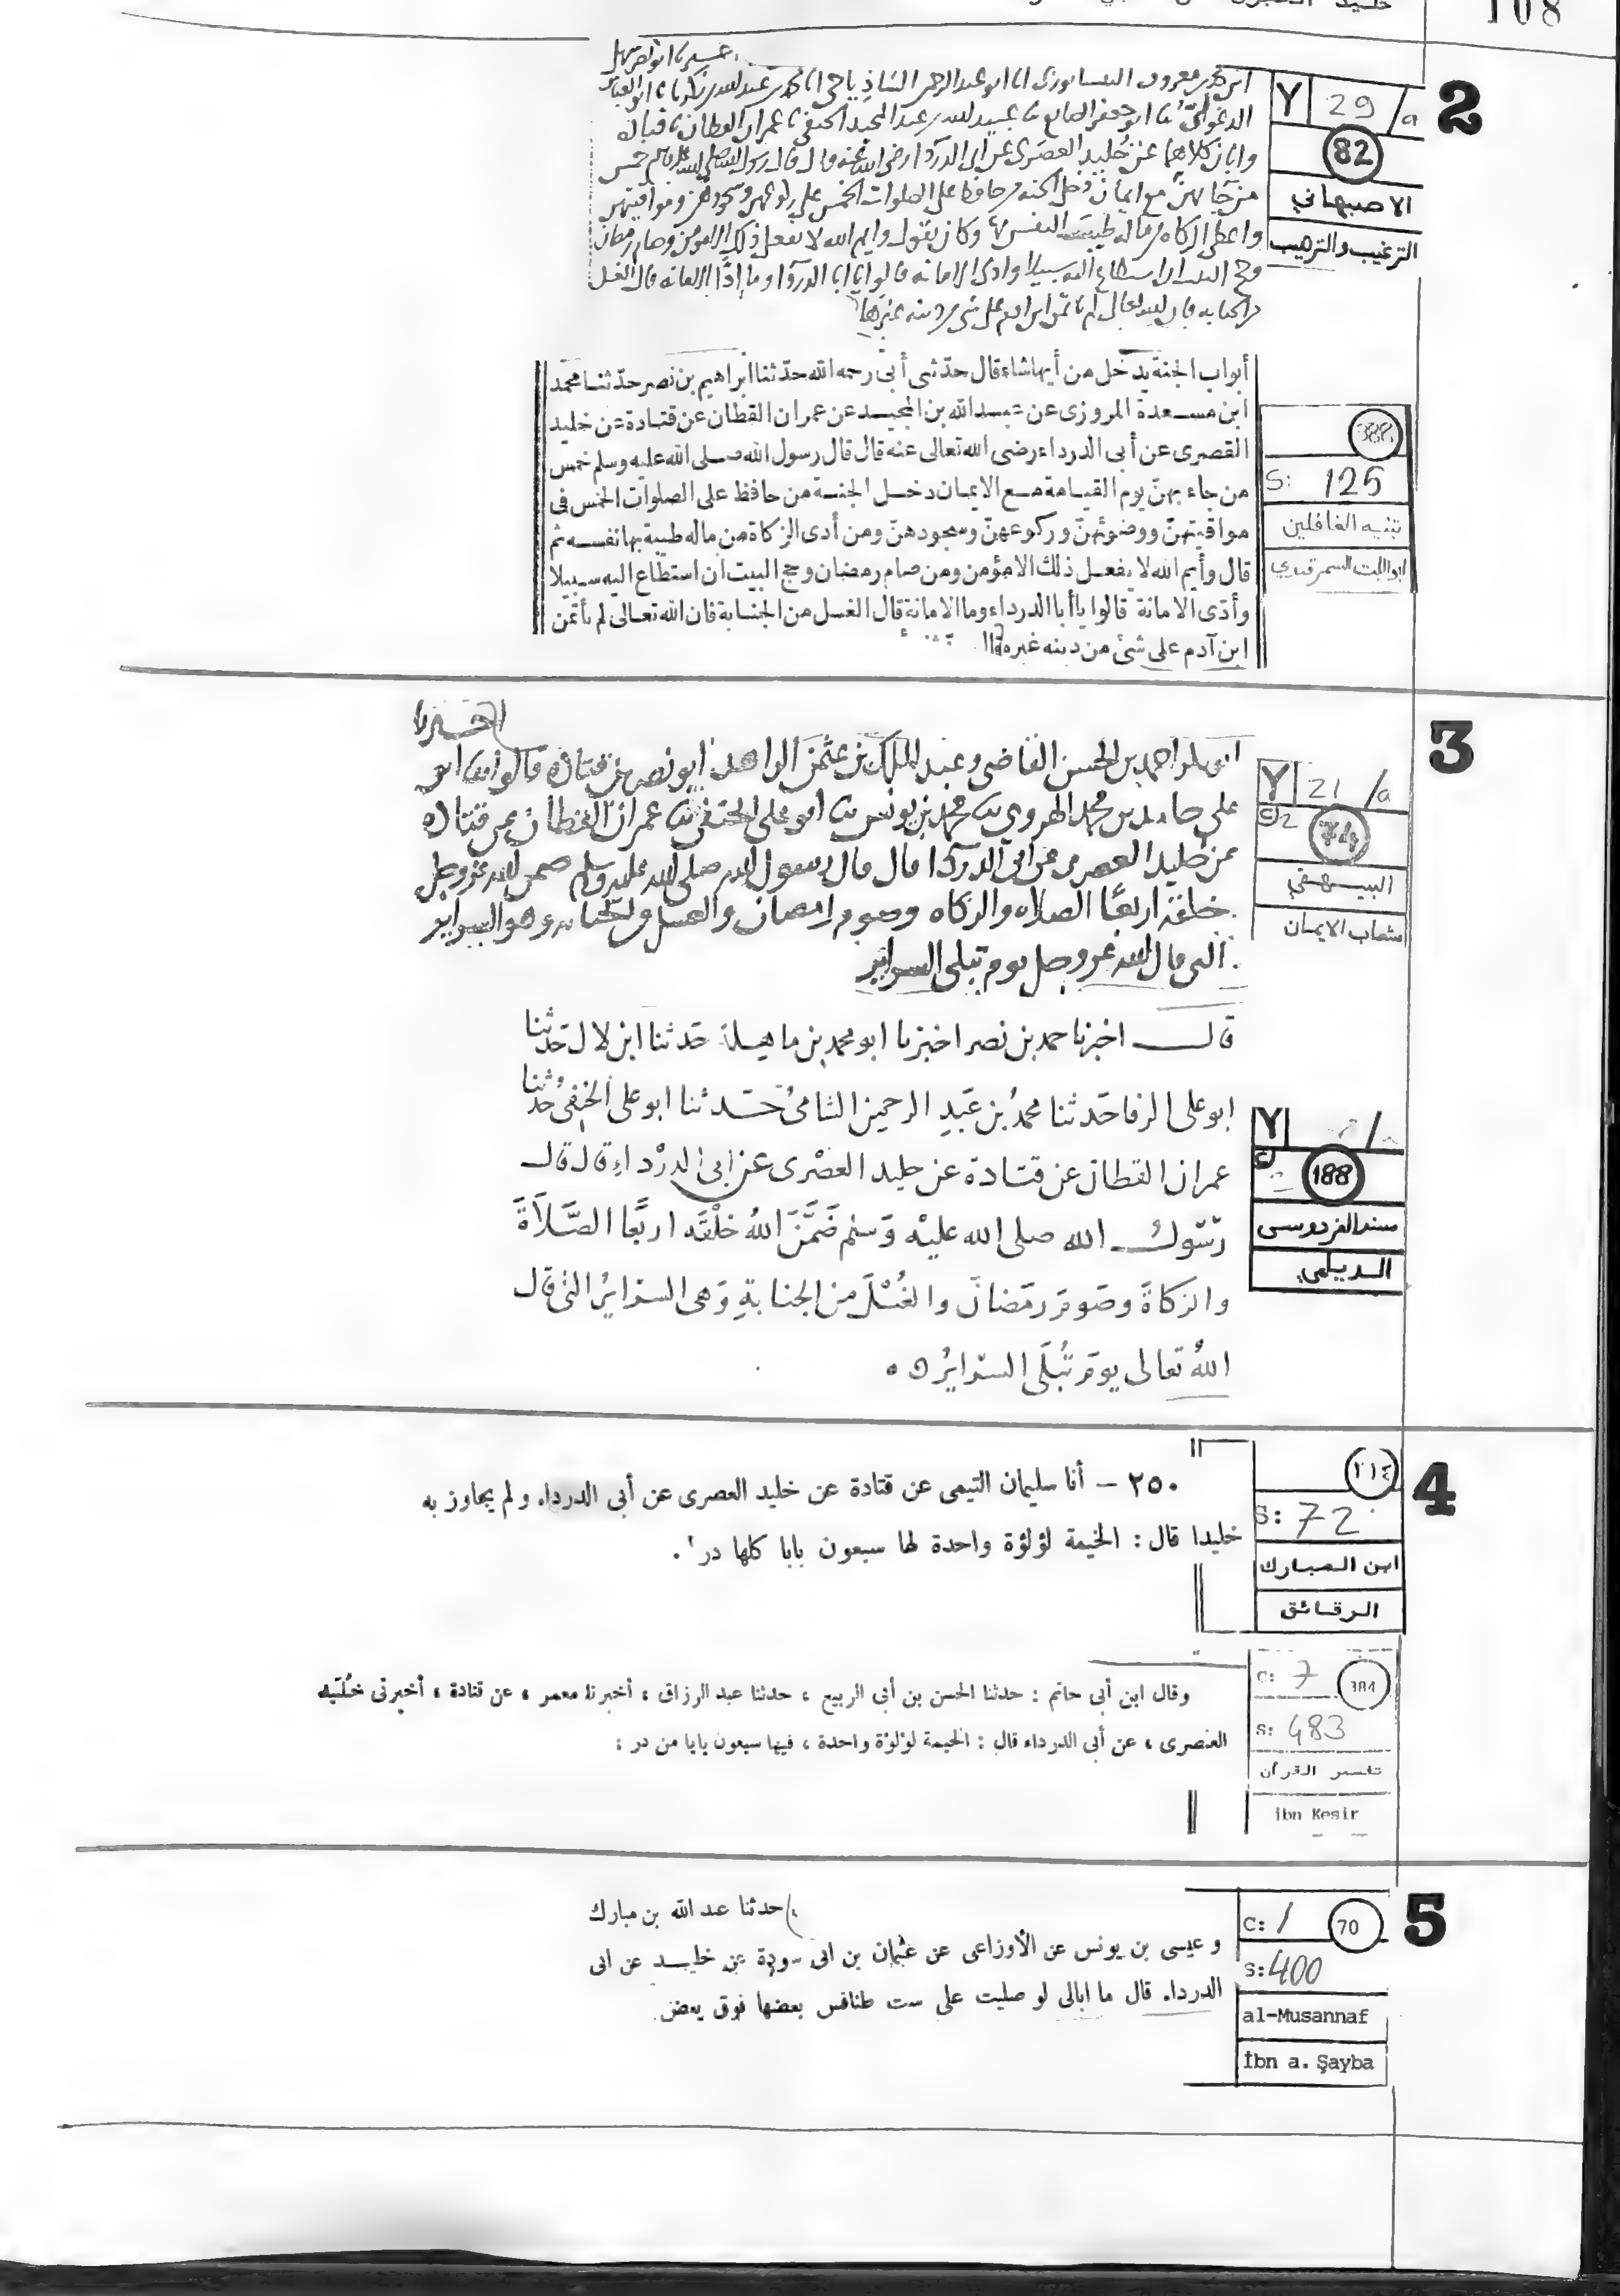 108
2
Y 29 /a
82
الاصبهاني
الترغيب والترهيب
الدغولي
عن خليد العصرى عن ابى الدردا رضى الله عنه قال قال رسول الله صلى الله عليه وسلم خمس
من جا بهن مع ايمان دخل الجنة من حافظ على الصلوات الخمس على وسجودهن ومواقيتهن
واعطى الزكاه من ماله طيبت النفس بها وكان يقول وايم الله لا يفعل ذلك الا مومن وصام رمضان
وحج البيت ان استطاع اليه سبيلا وادى الامانه قالوا يا ابا الدردا وما الامانه قال الغسل
من الجنابه فان الله تعالى لم ياتمن ابن ادم على شى من دينه غيرها
أبواب الجنة يدخل من أيها شاء قال حدّثنى أبى رحمه الله حدّثنا ابراهيم بن نصر حدّثنا محمد
ابن مسعدة المروزى عن عبد الله بن المجيد عن عمران القطان عن قتادة عن خليد
القصرى عن أبى الدرداء رضى الله تعالى عنه قال قال رسول الله صلى الله عليه وسلم خمس
من جاء بهنّ يوم القيامة مع الايمان دخل الجنة من حافظ على الصلوات الخمس فى
مواقيتهنّ ووضوئهنّ وركوعهنّ وسجودهنّ ومن أدى الزكاة من ماله طيبة بها نفسه ثم
قال وأيم الله لا يفعل ذلك الا مؤمن ومن صام رمضان وحج البيت ان استطاع اليه سبيلا
وأدّى الامانة قالوا يا أبا الدرداء وما الامانة قال الغسل من الجنابة فان الله تعالى لم يأتمن
ابن آدم على شئ من دينه غيرها
388
S: 125
تنبيه الغافلين
ابو الليث السمرقندي
3
Y 21 /a
البيهقي
شعاب الايمان
اخبرنا
احمد بن الحسن القاضى وعبد الملك بن عثمن الزاهد ابو نصر بن قتاده قالوا ابو
على حامد بن محمد الهروي محمد بن يونس ابو على الحنفى عمران القطان عن قتاده
عن خليد العصرى عن ابى الدردا قال قال رسول الله صلى الله عليه وسلم ضمن الله عز وجل
خلقه اربعا الصلاه والزكاه وصوم رمضان والغسل من الجنابه وهو السراير
التى قال الله عز وجل يوم تبلى السراير
قال اخبرنا حمد بن نصر اخبرنا ابو محمد بن ماهيلة حدثنا ابن لال حدثنا
ابو على الرفا حدثنا محمدُ بن عَبَيدِ الرحمن الشامىُ حدثنا ابو على الحنفىُ حدثنا
عمران القطان عن قتادة عن خليد العصْرى عن ابى الدرْداءِ قال قال
رسُوك الله صلى الله عليْه وَسلم ضَمَّنَ اللهُ خلْقَه اربعًا الصَّلاَةَ
والزكاةَ وصَومَ رمَضانَ والغُسْلَ من الجنابةِ وَهى السرايرُ التى قال
اللهُ تعالى يومَ تُبْلَى السرايرُ
Y
188
مسند الفردوسى
الديلمي
4
٢١٤
S: 72
ابن المبارك
الرقائق
٢٥٠ – أنا سليمان التيمى عن قتادة عن خليد العصرى عن أبى الدرداء ولم يجاوز به
خليدا قال : الخيمة لؤلؤة واحدة لها سبعون بابا كلها در١ .
c: 7 384
s: 483
تفسير القرآن
ibn Kesir
وقال ابن أبى حاتم : حدثنا الحسن بن أبى الربيع ، حدثنا عبد الرزاق ، أخبرنا معمر ، عن قتادة ، أخبرنى خُلَيد
العَصَرى ، عن أبى الدرداء قال : الخيمة لؤلؤة واحدة ، فيها سبعون بابا من در :
5
C: 1 70
S: 400
al-Musannaf
İbn a. Şayba
حدثنا عبد الله بن مبارك
و عيسى بن يونس عن الأوزاعى عن عثمان بن ابى سودة عن خليد عن ابى
الدرداء قال ما ابالى لو صليت على ست طنافس بعضها فوق بعض